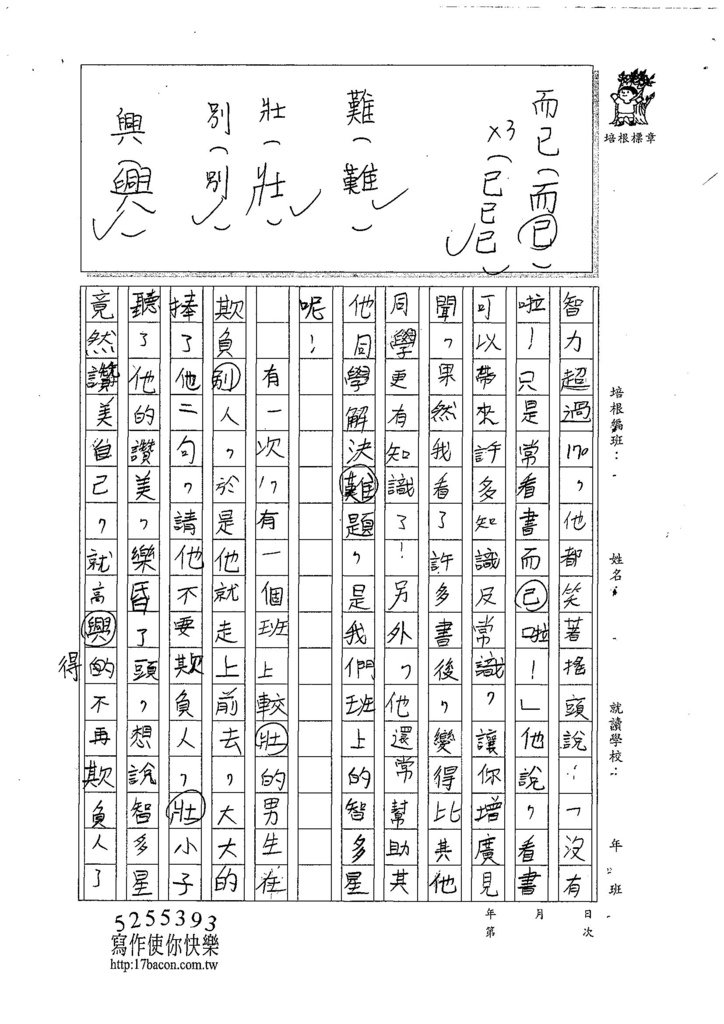 而已(而已)
x3(已已已)
難(難)
壯(壯)
別(別)
興(興)
培根標章
智力超過170,他都笑著搖頭說:「沒有
啦!只是常看書而已啦!」他說,看書
可以帶來許多知識及常識,讓你增廣見
聞,果然我看了許多書後,變得比其他
同學更有知識了!另外,他還常幫助其
他同學解決難題,是我們班上的智多星
呢!
有一次,有一個班上較壯的男生在
欺負別人,於是他就走上前去,大大的
捧了他二句,請他不要欺負人,壯小子
聽了他的讚美,樂昏了頭,想說智多星
竟然讚美自己,就高興的不再欺負人了
得
培根 班:
姓名:
就讀學校:
年 班
年 月 日
第 次
5255393
寫作使你快樂
http:17bacon.com.tw